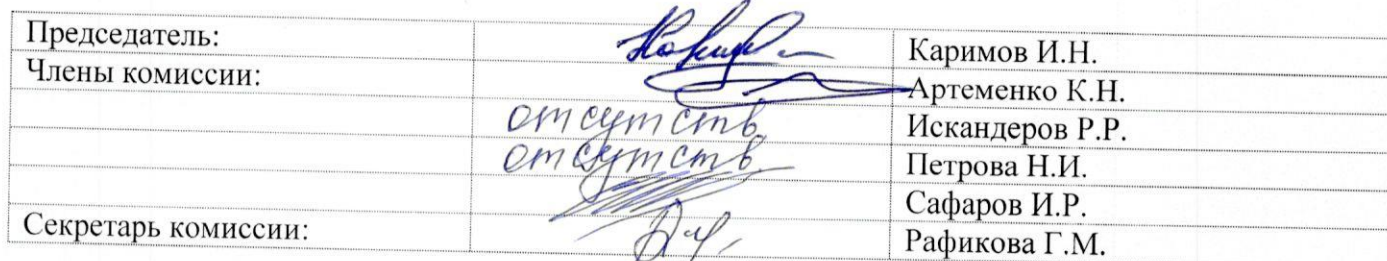 Председатель: Каримов И.Н.
Члены комиссии: Артеменко К.Н.
отсутств. Искандеров Р.Р.
отсутств. Петрова Н.И.
Сафаров И.Р.
Секретарь комиссии: Рафикова Г.М.